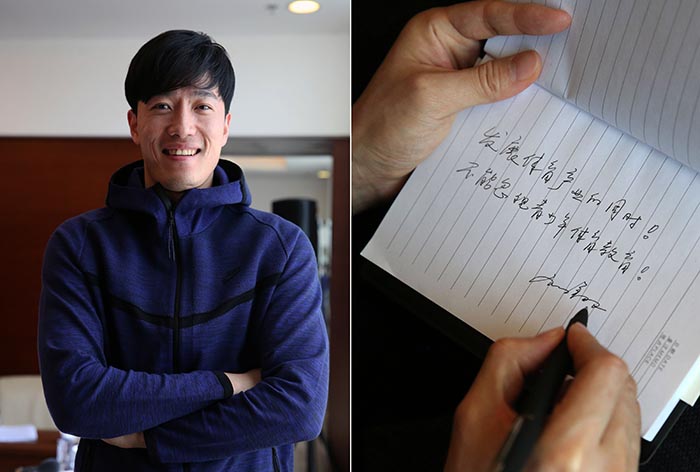 发展体育产业的同时!
不能忽视青少年体育教育!
DATE